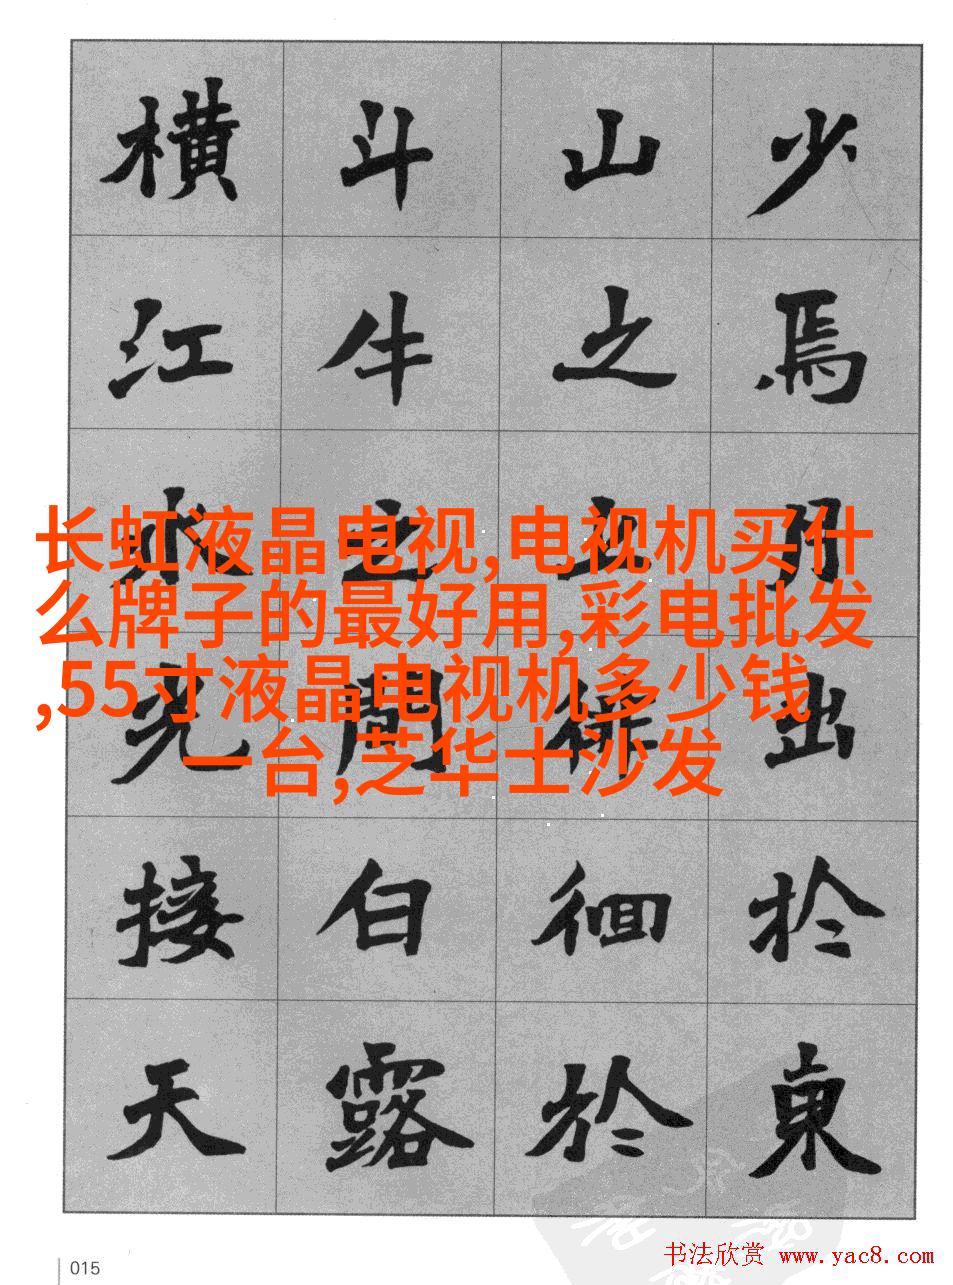 少焉月出於東
山之上徘徊於
斗牛之間白露
橫江水光接天
长虹液晶电视,电视机买什
么牌子的最好用,彩电批发
,55寸液晶电视机多少钱
一台,芝华士沙发
015
书法欣赏 www.yac8.com